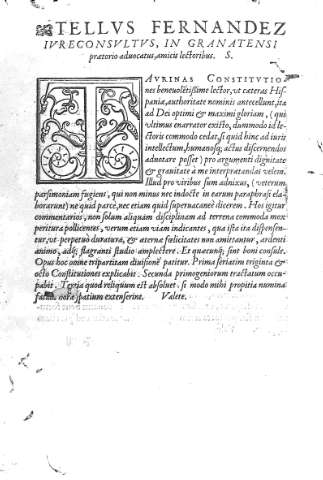 TELLVS FERNANDEZ
IVRECONSVLTVS, IN GRANATENSI
prætorio aduocatus, amicis lectoribus. S.
TAVRINAS CONSTITVTIO
nes beneuolẽtissime lector, vt cæteras His-
paniæ, authoritate nominis antecellunt, ita
ad Dei optimi & maximi gloriam, (qui
vltimus enarrator existo, dummodo id le-
ctoris commodo cedat, si quid hinc ad iuris
intellectum, humanosq; actus discernendos
adnotare posset) pro argumenti dignitate
& grauitate à me interpretandas velem.
Illud pro viribus sum adnixus, (veterum
parsimoniam fugient, qui non minus nec indocte in earum paraphrasi ela
borarunt) ne quid parcè, nec etiam quid superuacaneè dicerem. Hos igitur
commentarios, non solum aliquam disciplinam ad terrena commoda mox
peritura pollicentes, verum etiam viam indicantes, qua ista ita dispensen-
tur, vt perpetuò duratura, & æternæ felicitates non amittantur, ardenti
animo, adq; flagranti studio amplectere. Et quæcunq; sint boni consule.
Opus hoc omne tripartitam diuisionẽ patitur. Prima seriatim triginta &
octo Constitutiones explicabit. Secunda primogeniorum tractatum occu-
pabit. Tertia quod reliquum est absoluet. si modo mihi propitia numina
spatium extenserint. Valete.